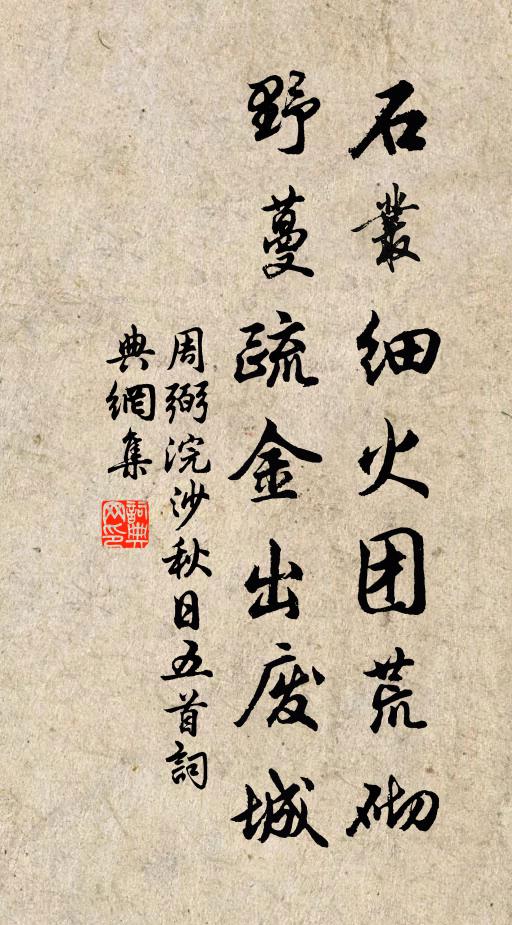 石叢细火团荒砌
野蔓疏金出废城
周弼浣沙秋日五首詞
典網集
詞典網印